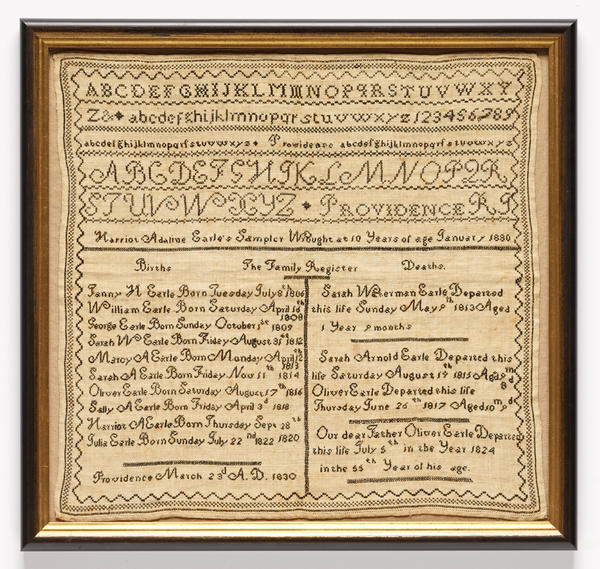 ABCDEFGHIJKLMNOPQRSTUVWXY
Z& abcdefghijklmnopqrstuvwxyz 123456789
abcdefghijklmnopqrstuvwxyz Providence abcdefghijklmnopqrstuvwxyz
ABCDEFGHIJKLMNOPQR
STUVWXYZ PROVIDENCE RI
Harriot Adaline Earle's Sampler Wrought at 10 Years of age January 1830
Births The Family Register Deaths.
Fanny H Earle Born Tuesday July 8th 1806
William Earle Born Saturday April 16th 1808
George Earle Born Sunday October 1st 1809
Sarah W Earle Born Friday August 31st 1812
Marcy A Earle Born Monday April 12th 1813
Sarah A Earle Born Friday Nov 11th 1814
Oliver Earle Born Saturday August 17th 1816
Sally A Earle Born Friday April 3d 1818
Harriot A Earle Born Thursday Sept 28th 1820
Julia Earle Born Sunday July 22nd 1822
Providence March 23d A.D. 1830
Sarah Waterman Earle Departed
this life Sunday May 9th 1813 Aged
1 Year 9 months
Sarah Arnold Earle Departed this
life Saturday August 19th 1815 Aged 9m 8d
Oliver Earle Departed this life
Thursday June 26th 1817 Aged 10m 9d
Our dear Father Oliver Earle Departed
this life July 5th in the Year 1824
in the 55th Year of his age.